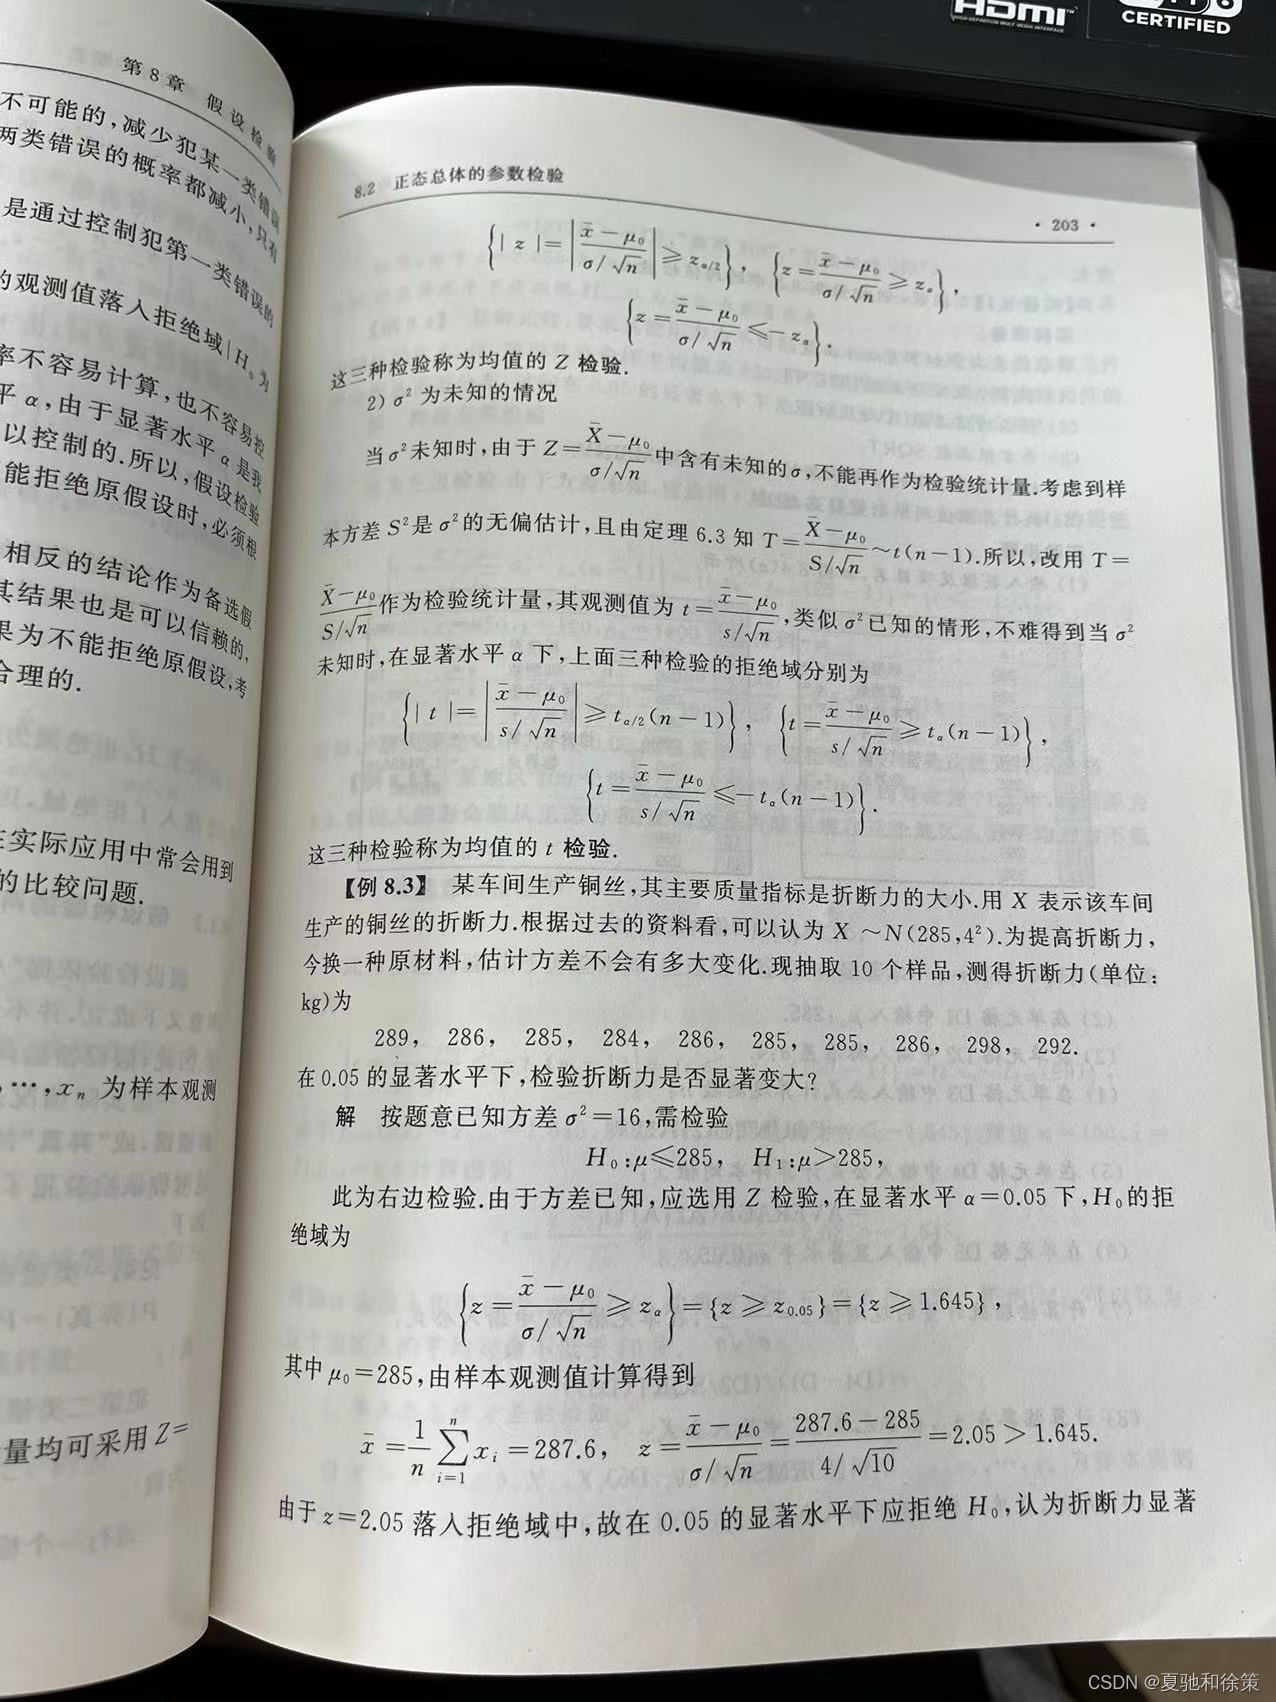 HDMI
HIGH-DEFINITION MULTIMEDIA INTERFACE
CERTIFIED
第8章 假设检验
不可能的,减少犯某一类错误
两类错误的概率都减小,只有
是通过控制犯第一类错误的
的观测值落入拒绝域|H₀为
率不容易计算,也不容易控
平α,由于显著水平α是我
以控制的.所以,假设检验
能拒绝原假设时,必须根
相反的结论作为备选假
其结果也是可以信赖的,
果为不能拒绝原假设,考
合理的.
在实际应用中常会用到
的比较问题.
,…,xₙ 为样本观测
量均可采用Z=
8.2 正态总体的参数检验
· 203 ·
{| z |=|(x̄-μ₀)/(σ/√n)|≥z_{α/2}}, {z=(x̄-μ₀)/(σ/√n)≥z_α},
{z=(x̄-μ₀)/(σ/√n)≤-z_α}.
这三种检验称为均值的 Z 检验.
2) σ² 为未知的情况
当σ²未知时,由于 Z=(X̄-μ₀)/(σ/√n)中含有未知的σ,不能再作为检验统计量.考虑到样
本方差 S²是σ²的无偏估计,且由定理 6.3 知 T=(X̄-μ₀)/(S/√n)~t(n-1).所以,改用 T=
(X̄-μ₀)/(S/√n)作为检验统计量,其观测值为 t=(x̄-μ₀)/(s/√n),类似σ²已知的情形,不难得到当σ²
未知时,在显著水平 α 下,上面三种检验的拒绝域分别为
{| t |=|(x̄-μ₀)/(s/√n)|≥t_{α/2}(n-1)}, {t=(x̄-μ₀)/(s/√n)≥t_α(n-1)},
{t=(x̄-μ₀)/(s/√n)≤-t_α(n-1)}.
这三种检验称为均值的 t 检验.
【例 8.3】 某车间生产铜丝,其主要质量指标是折断力的大小.用 X 表示该车间
生产的铜丝的折断力.根据过去的资料看,可以认为 X ~N(285,4²).为提高折断力,
今换一种原材料,估计方差不会有多大变化.现抽取 10 个样品,测得折断力(单位:
kg)为
289, 286, 285, 284, 286, 285, 285, 286, 298, 292.
在 0.05 的显著水平下,检验折断力是否显著变大?
解 按题意已知方差 σ²=16,需检验
H₀:μ≤285, H₁:μ>285,
此为右边检验.由于方差已知,应选用 Z 检验,在显著水平 α=0.05 下,H₀的拒
绝域为
{z=(x̄-μ₀)/(σ/√n)≥z_α}={z≥z_{0.05}}={z≥1.645},
其中 μ₀=285,由样本观测值计算得到
x̄=(1/n)∑_{i=1}^{n}xᵢ=287.6, z=(x̄-μ₀)/(σ/√n)=(287.6-285)/(4/√10)=2.05>1.645.
由于 z=2.05 落入拒绝域中,故在 0.05 的显著水平下应拒绝 H₀,认为折断力显著
CSDN @夏驰和徐策